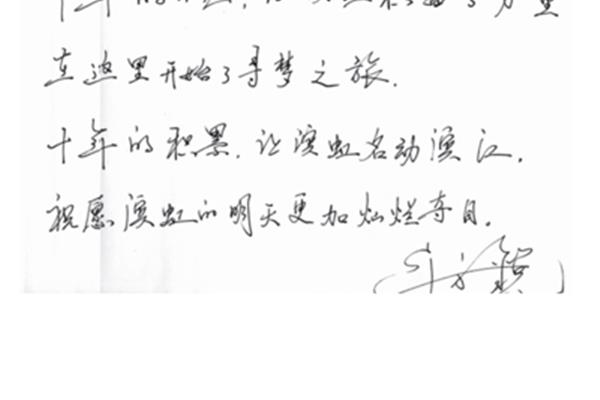 在这里开始了寻梦之旅.
十年的积累,让滨虹名动滨江,
祝愿滨虹的明天更加灿烂夺目.